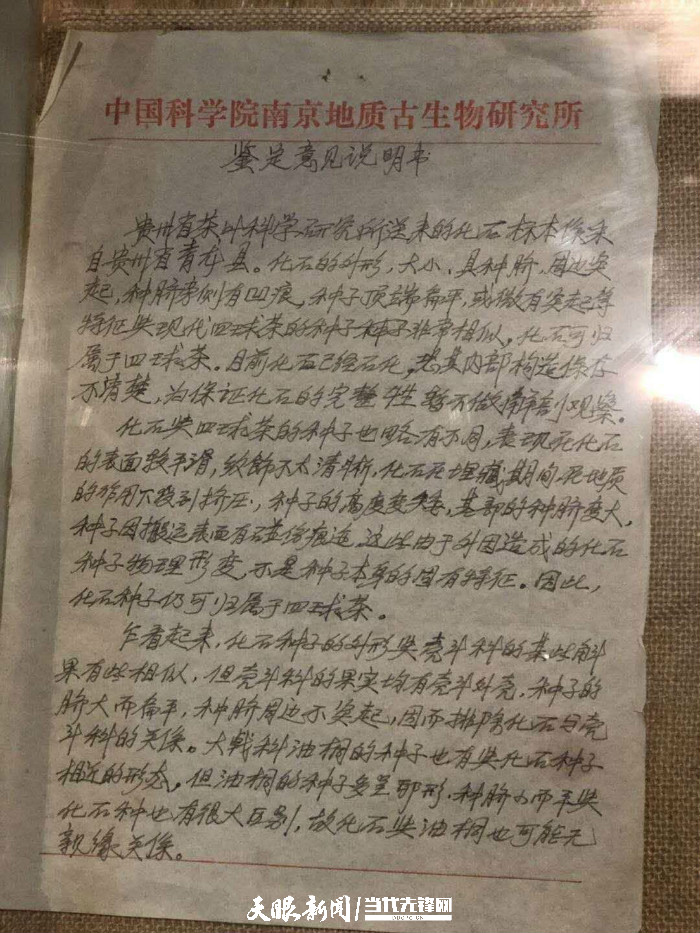 中国科学院南京地质古生物研究所
鉴定意见说明书
贵州省茶叶科学研究所送来的化石标本系采
自贵州省青龙县。化石的外形，大小，具种脐，周边突
起，种脐旁侧有凹痕，种子顶端扁平，或微有突起等
特征与现代四球茶的种子种子非常相似，化石可归
属于四球茶。目前化石已经石化，恐其内部构造保存
不清楚，为保证化石的完整性暂不做解剖观察。
化石与四球茶的种子也略有不同，表现在化石
的表面较平滑，纹饰不太清晰，化石在埋藏期间，受地质
的作用下受到挤压，种子的高度变矮，基部的种脐变大，
种子因搬运表面有碰伤痕迹，这些由于外因造成的化石
种子物理形变，不是种子本身的固有特征。因此，
化石种子仍可归属于四球茶。
乍看起来，化石种子的外形与壳斗科的某些
果有些相似，但壳斗科的果实均有壳斗外壳，种子的
脐大而扁平，种脐周边不突起，因而排除化石与壳
斗科的关係。大戟科油桐的种子也有与化石种子
相近的形态，但油桐的种子多呈卵形，种脐小而平与
化石种也有很大区别，故化石与油桐也可能无
亲缘关係。
天眼新闻/当代先锋网
DDCPC.CN